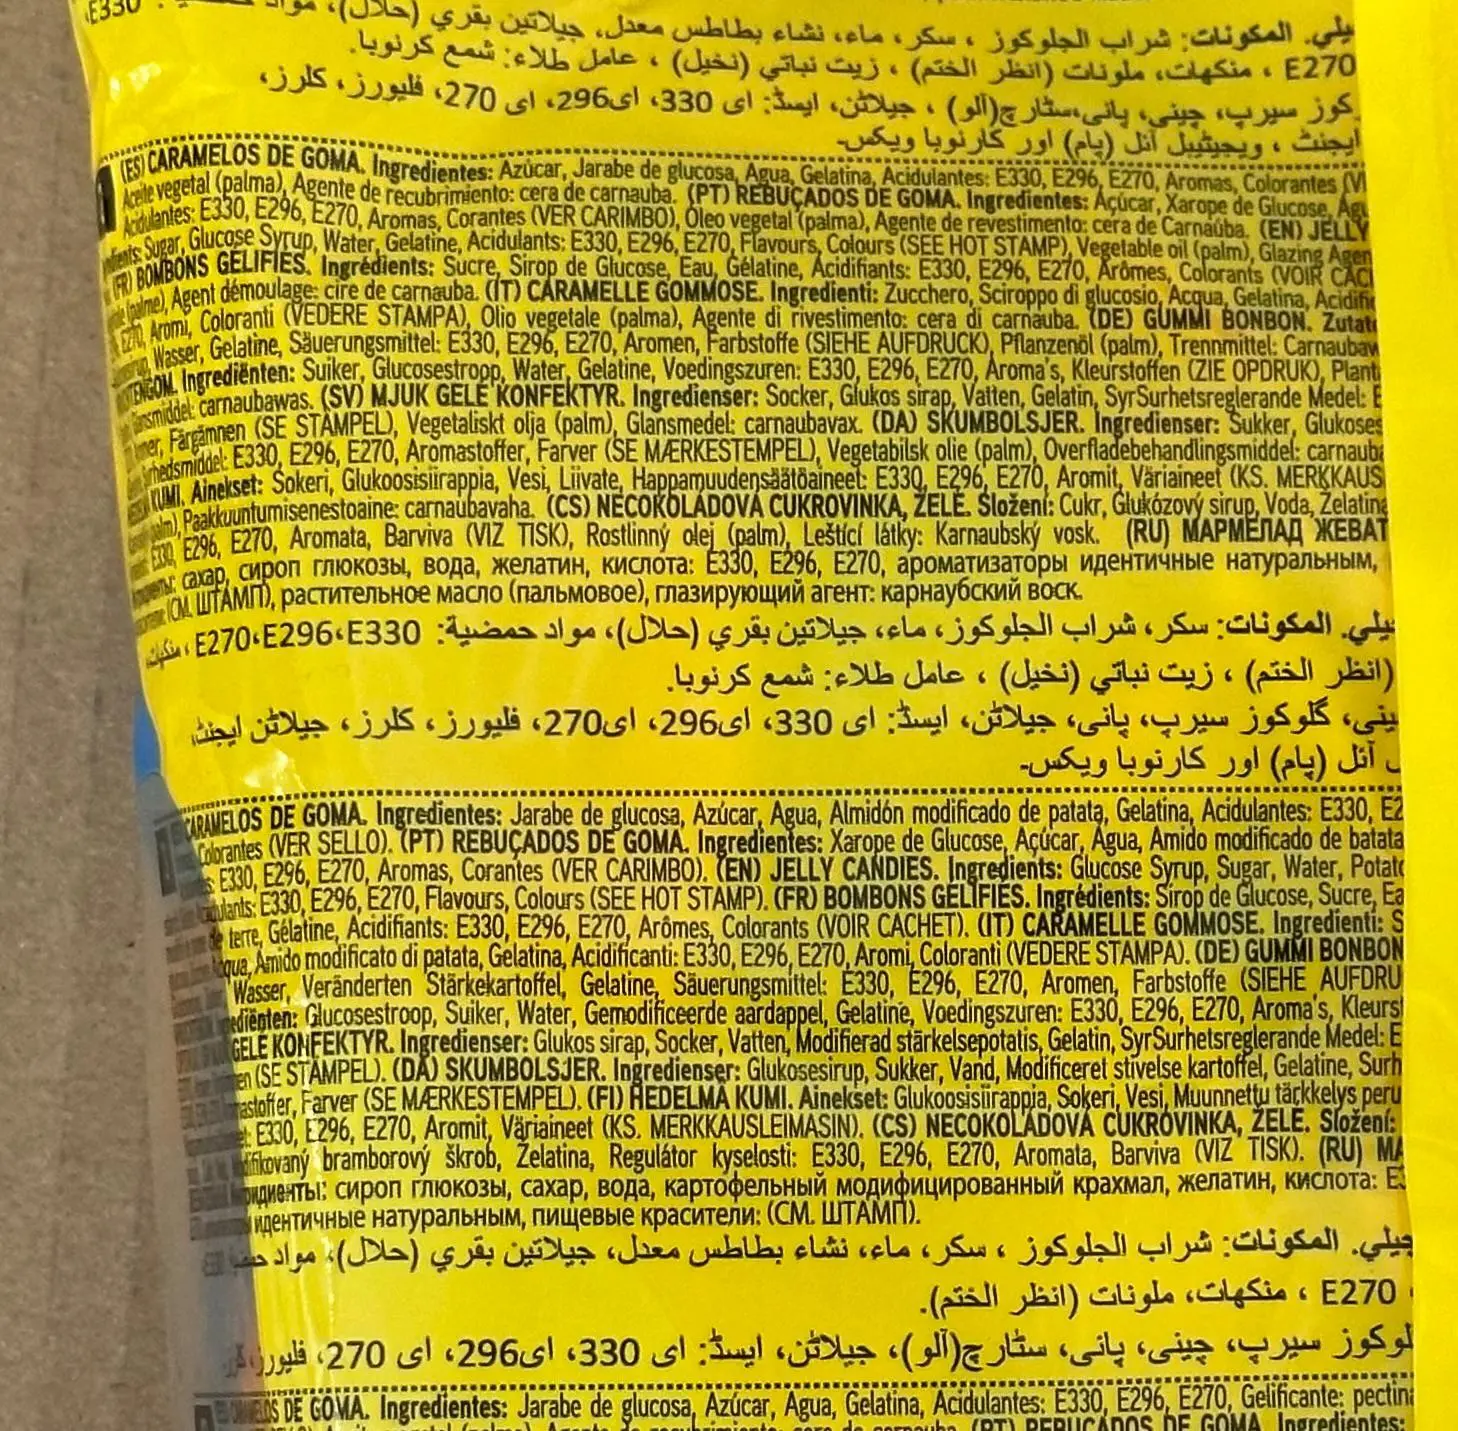 يلي. المكونات: شراب الجلوكوز ، سكر، ماء، نشاء بطاطس معدل، جيلاتين بقري (حلال)، مواد حمضية: E330،
E270 ، منكهات، ملونات (انظر الختم) ، زيت نباتي (نخيل) ، عامل طلاء: شمع كرنوبا.
کوز سیرپ، چینی، پانی،سٹارچ(آلو) ، جیلاٹن، ایسڈ: ای 330، ای296، ای 270، فلیورز، کلرز،
ایجنٹ ، ویجیٹیبل آئل (پام) اور کارنوبا ویکس۔
(ES) CARAMELOS DE GOMA. Ingredientes: Azúcar, Jarabe de glucosa, Agua, Gelatina, Acidulantes: E330, E296, E270, Aromas, Colorantes (V
Aceite vegetal (palma), Agente de recubrimiento: cera de carnauba. (PT) REBUÇADOS DE GOMA. Ingredientes: Açúcar, Xarope de Glucose, Águ
Acidulantes: E330, E296, E270, Aromas, Corantes (VER CARIMBO), Óleo vegetal (palma), Agente de revestimento: cera de Carnaúba. (EN) JELLY
Sugar, Glucose Syrup, Water, Gelatine, Acidulants: E330, E296, E270, Flavours, Colours (SEE HOT STAMP), Vegetable oil (palm), Glazing Agen
(FR) BOMBONS GÉLIFIÉS. Ingrédients: Sucre, Sirop de Glucose, Eau, Gélatine, Acidifiants: E330, E296, E270, Arômes, Colorants (VOIR CAC
(palme), Agent démoulage: cire de carnauba. (IT) CARAMELLE GOMMOSE. Ingredienti: Zucchero, Sciroppo di glucosio, Acqua, Gelatina, Acidifi
E270, Aromi, Coloranti (VEDERE STAMPA), Olio vegetale (palma), Agente di rivestimento: cera di carnauba. (DE) GUMMI BONBON. Zutat
Wasser, Gelatine, Säuerungsmittel: E330, E296, E270, Aromen, Farbstoffe (SIEHE AUFDRUCK), Pflanzenöl (palm), Trennmittel: Carnaubaw
TENGOM. Ingrediënten: Suiker, Glucosestropp, Water, Gelatine, Voedingszuren: E330, E296, E270, Aroma's, Kleurstoffen (ZIE OPDRUK), Plant
Glansmiddel: carnaubawas. (SV) MJUK GELÉ KONFEKTYR. Ingredienser: Socker, Glukos sirap, Vatten, Gelatin, SyrSurhetsreglerande Medel: E
Färgämnen (SE STÄMPEL), Vegetaliskt olja (palm), Glansmedel: carnaubavax. (DA) SKUMBOLSJER. Ingredienser: Sukker, Glukoses
E330, E296, E270, Aromastoffer, Farver (SE MÆRKESTEMPEL), Vegetabilsk olie (palm), Overfladebehandlingsmiddel: carnauba
KUMI. Ainekset: Sokeri, Glukoosisiirappia, Vesi, Liivate, Happamuudensäätöaineet: E330, E296, E270, Aromit, Väriaineet (KS. MERKKAUS
palm), Paakkuuntumisenestoaine: carnaubavaha. (CS) NECOKOLÁDOVÁ CUKROVINKA, ŽELÉ. Složení: Cukr, Glukózový sirup, Voda, Želatina
E330, E296, E270, Aromata, Barviva (VIZ TISK), Rostlinný olej (palm), Leštící látky: Karnaubský vosk. (RU) МАРМЕЛАД ЖЕВАТ
сахар, сироп глюкозы, вода, желатин, кислота: E330, E296, E270, ароматизаторы идентичные натуральным,
(СМ. ШТАМП), растительное масло (пальмовое), глазирующий агент: карнаубский воск.
يلي. المكونات: سكر، شراب الجلوكوز، ماء، جيلاتين بقري (حلال)، مواد حمضية: E330،E296،E270 ، منكهات،
(انظر الختم) ، زيت نباتي (نخيل) ، عامل طلاء: شمع كرنوبا.
ینی، گلوکوز سیرپ، پانی، جیلاٹن، ایسڈ: ای 330، ای296، ای270، فلیورز، کلرز، جیلاٹن ایجنٹ،
آئل (پام) اور کارنوبا ویکس۔
CARAMELOS DE GOMA. Ingredientes: Jarabe de glucosa, Azúcar, Agua, Almidón modificado de patata, Gelatina, Acidulantes: E330, E2
Colorantes (VER SELLO). (PT) REBUÇADOS DE GOMA. Ingredientes: Xarope de Glucose, Açúcar, Água, Amido modificado de batata
E330, E296, E270, Aromas, Corantes (VER CARIMBO). (EN) JELLY CANDIES. Ingredients: Glucose Syrup, Sugar, Water, Potato
E330, E296, E270, Flavours, Colours (SEE HOT STAMP). (FR) BOMBONS GÉLIFIÉS. Ingrédients: Sirop de Glucose, Sucre, Ea
de terre, Gélatine, Acidifiants: E330, E296, E270, Arômes, Colorants (VOIR CACHET). (IT) CARAMELLE GOMMOSE. Ingredienti: S
Acqua, Amido modificato di patata, Gelatina, Acidificanti: E330, E296, E270, Aromi, Coloranti (VEDERE STAMPA). (DE) GUMMI BONBON
Wasser, Veränderten Stärkekartoffel, Gelatine, Säuerungsmittel: E330, E296, E270, Aromen, Farbstoffe (SIEHE AUFDRU
ediënten: Glucosestroop, Suiker, Water, Gemodificeerde aardappel, Gelatine, Voedingszuren: E330, E296, E270, Aroma's, Kleurst
GELÉ KONFEKTYR. Ingredienser: Glukos sirap, Socker, Vatten, Modifierad stärkelsepotatis, Gelatin, SyrSurhetsreglerande Medel: E
(SE STÄMPEL). (DA) SKUMBOLSJER. Ingredienser: Glukosesirup, Sukker, Vand, Modificeret stivelse kartoffel, Gelatine, Surh
mastoffer, Farver (SE MÆRKESTEMPEL). (FI) HEDELMÄ KUMI. Ainekset: Glukoosisiirappia, Sokeri, Vesi, Muunnettu tärkkelys peru
E330, E296, E270, Aromit, Väriaineet (KS. MERKKAUSLEIMASIN). (CS) NECOKOLÁDOVÁ CUKROVINKA, ŽELÉ. Složení:
difikovaný bramborový škrob, Želatina, Regulátor kyselosti: E330, E296, E270, Aromata, Barviva (VIZ TISK). (RU) МА
сироп глюкозы, сахар, вода, картофельный модифицированный крахмал, желатин, кислота: E3
идентичные натуральным, пищевые красители: (СМ. ШТАМП).
جيلي. المكونات: شراب الجلوكوز ، سكر، ماء، نشاء بطاطس معدل، جيلاتين بقري (حلال)، مواد
E270 ، منكهات، ملونات (انظر الختم).
لوکوز سیرپ، چینی، پانی، سٹارچ(آلو)، جیلاٹن، ایسڈ: ای 330، ای296، ای 270، فلیورز،
DE GOMA. Ingredientes: Jarabe de glucosa, Azúcar, Agua, Gelatina, Acidulantes: E330, E296, E270, Gelificante: pectina
(PT) REBUÇADOS DE GOMA. Ingredientes: